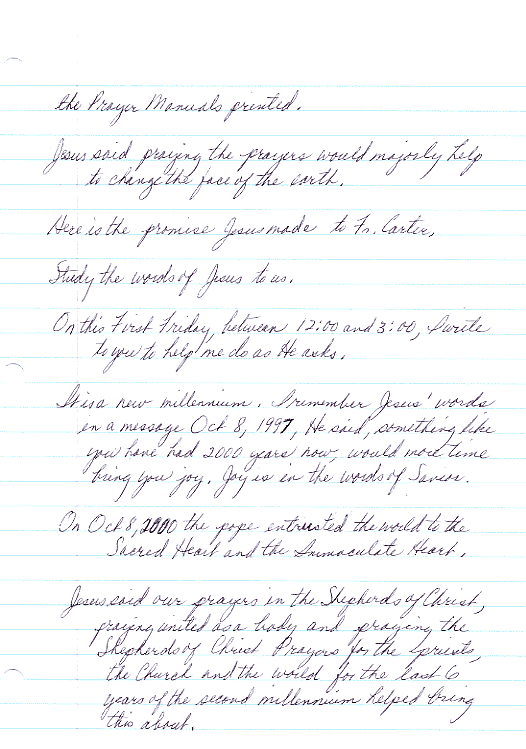 the Prayer Manuals printed.
Jesus said praying the prayers would majorly help
to change the face of the earth.
Here is the promise Jesus made to Fr. Carter,
Study the words of Jesus to us.
On this First Friday, between 12:00 and 3:00, I write
to you to help me do as He asks.
It is a new millennium. I remember Jesus' words
in a message Oct 8, 1997, He said, something like
you have had 2000 years now, would more time
bring you joy. Joy is in the words of Savior.
On Oct 8, 2000 the pope entrusted the world to the
Sacred Heart and the Immaculate Heart.
Jesus said our prayers in the Shepherds of Christ,
praying united as a body and praying the
Shepherds of Christ Prayers for the priests,
the Church and the world for the last 6
years of the second millennium helped bring
this about.